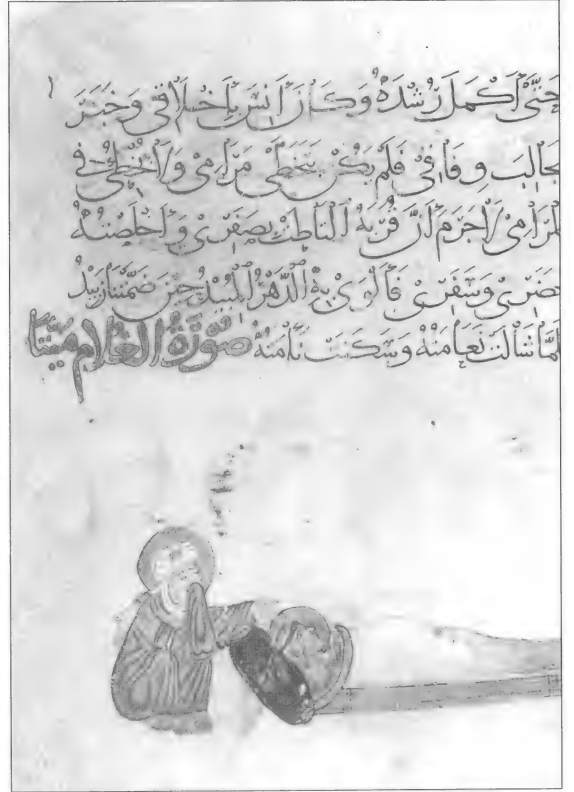 حَتَّى أَكْمَلَ رُشْدَهُ وَكَانَ أَنِسَ بِأَخْلَاقِي وَخَبَرَ
مَجَالِبَ وِفَاقِي فَلَمْ يَكُنْ يَتَخَطَّى مَرَامِي وَلَا يُخْطِئُ فِي
لْمَرَامِي لَا جَرَمَ أَنَّ قُرَبَهُ الْتَاطَتْ بِصَفَرِي وَأَخْلَصْتُهُ
حَضَرِي وَسَفَرِي فَأَلْوَى بِهِ الدَّهْرُ الْمُبِيدُ حِينَ ضَمَّتْنَا زَبِيدُ
لَمَّا شَالَتْ نَعَامَتُهُ وَسَكَنَتْ نَأْمَتُهُ صُورَةُ الْغُلَامِ مَيِّتًا